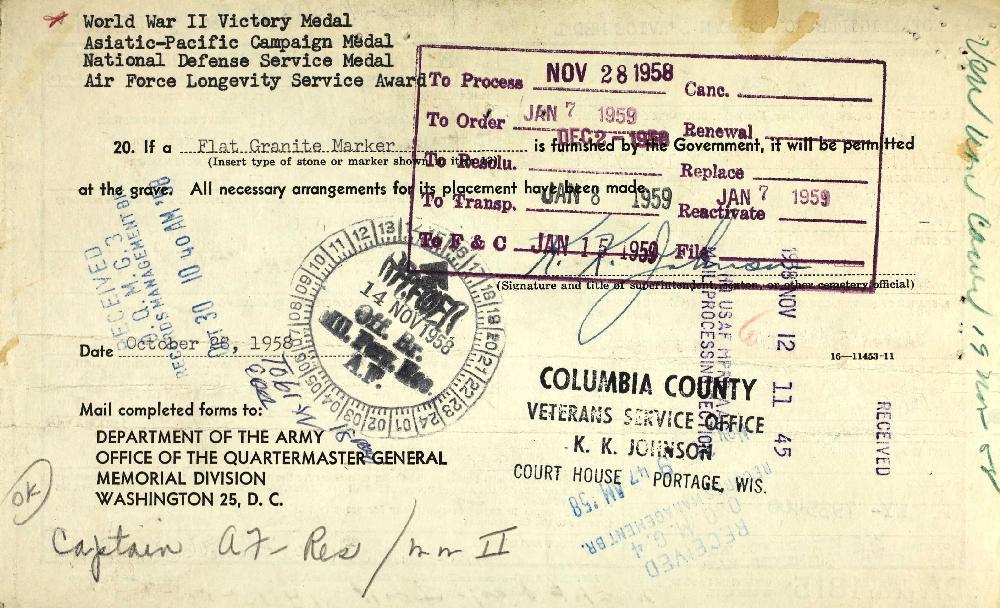 World War II Victory Medal
Asiatic-Pacific Campaign Medal
National Defense Service Medal
Air Force Longevity Service Award
To Process NOV 28 1958 Canc.
To Order JAN 7 1959
DEC 2 - 1958 Renewal
20. If a Flat Granite Marker is furnished by the Government, it will be permitted
(Insert type of stone or marker shown in item
To Resolu. Replace
at the grave. All necessary arrangements for its placement have been made.
To Transp. JAN 8 1959 JAN 7 1959
Reactivate
To F & C JAN 15 1959 File
K. K. Johnson
(Signature and title of superintendent, sexton, or other cemetery official)
RECEIVED
O. Q. M. G. 3
RECORDS MANAGEMENT BR.
OCT 30 10 40 AM '58
07 08 09 10 11 12 13 14 15 16 17 18 19 20 21 22 23 24 01 02 03 04 05 06
14 NOV 1958
Off. Br.
A.F.
1958 NOV 12 11 45
RECEIVED
Date October 28, 1958
16—11453-11
COLUMBIA COUNTY
VETERANS SERVICE OFFICE
K. K. JOHNSON
COURT HOUSE PORTAGE, WIS.
Mail completed forms to:
DEPARTMENT OF THE ARMY
OFFICE OF THE QUARTERMASTER GENERAL
MEMORIAL DIVISION
WASHINGTON 25, D. C.
RECEIVED
O. Q. M. G. 4
MANAGEMENT BR.
9 47 AM '58
OK
Captain AF- Res / WW II